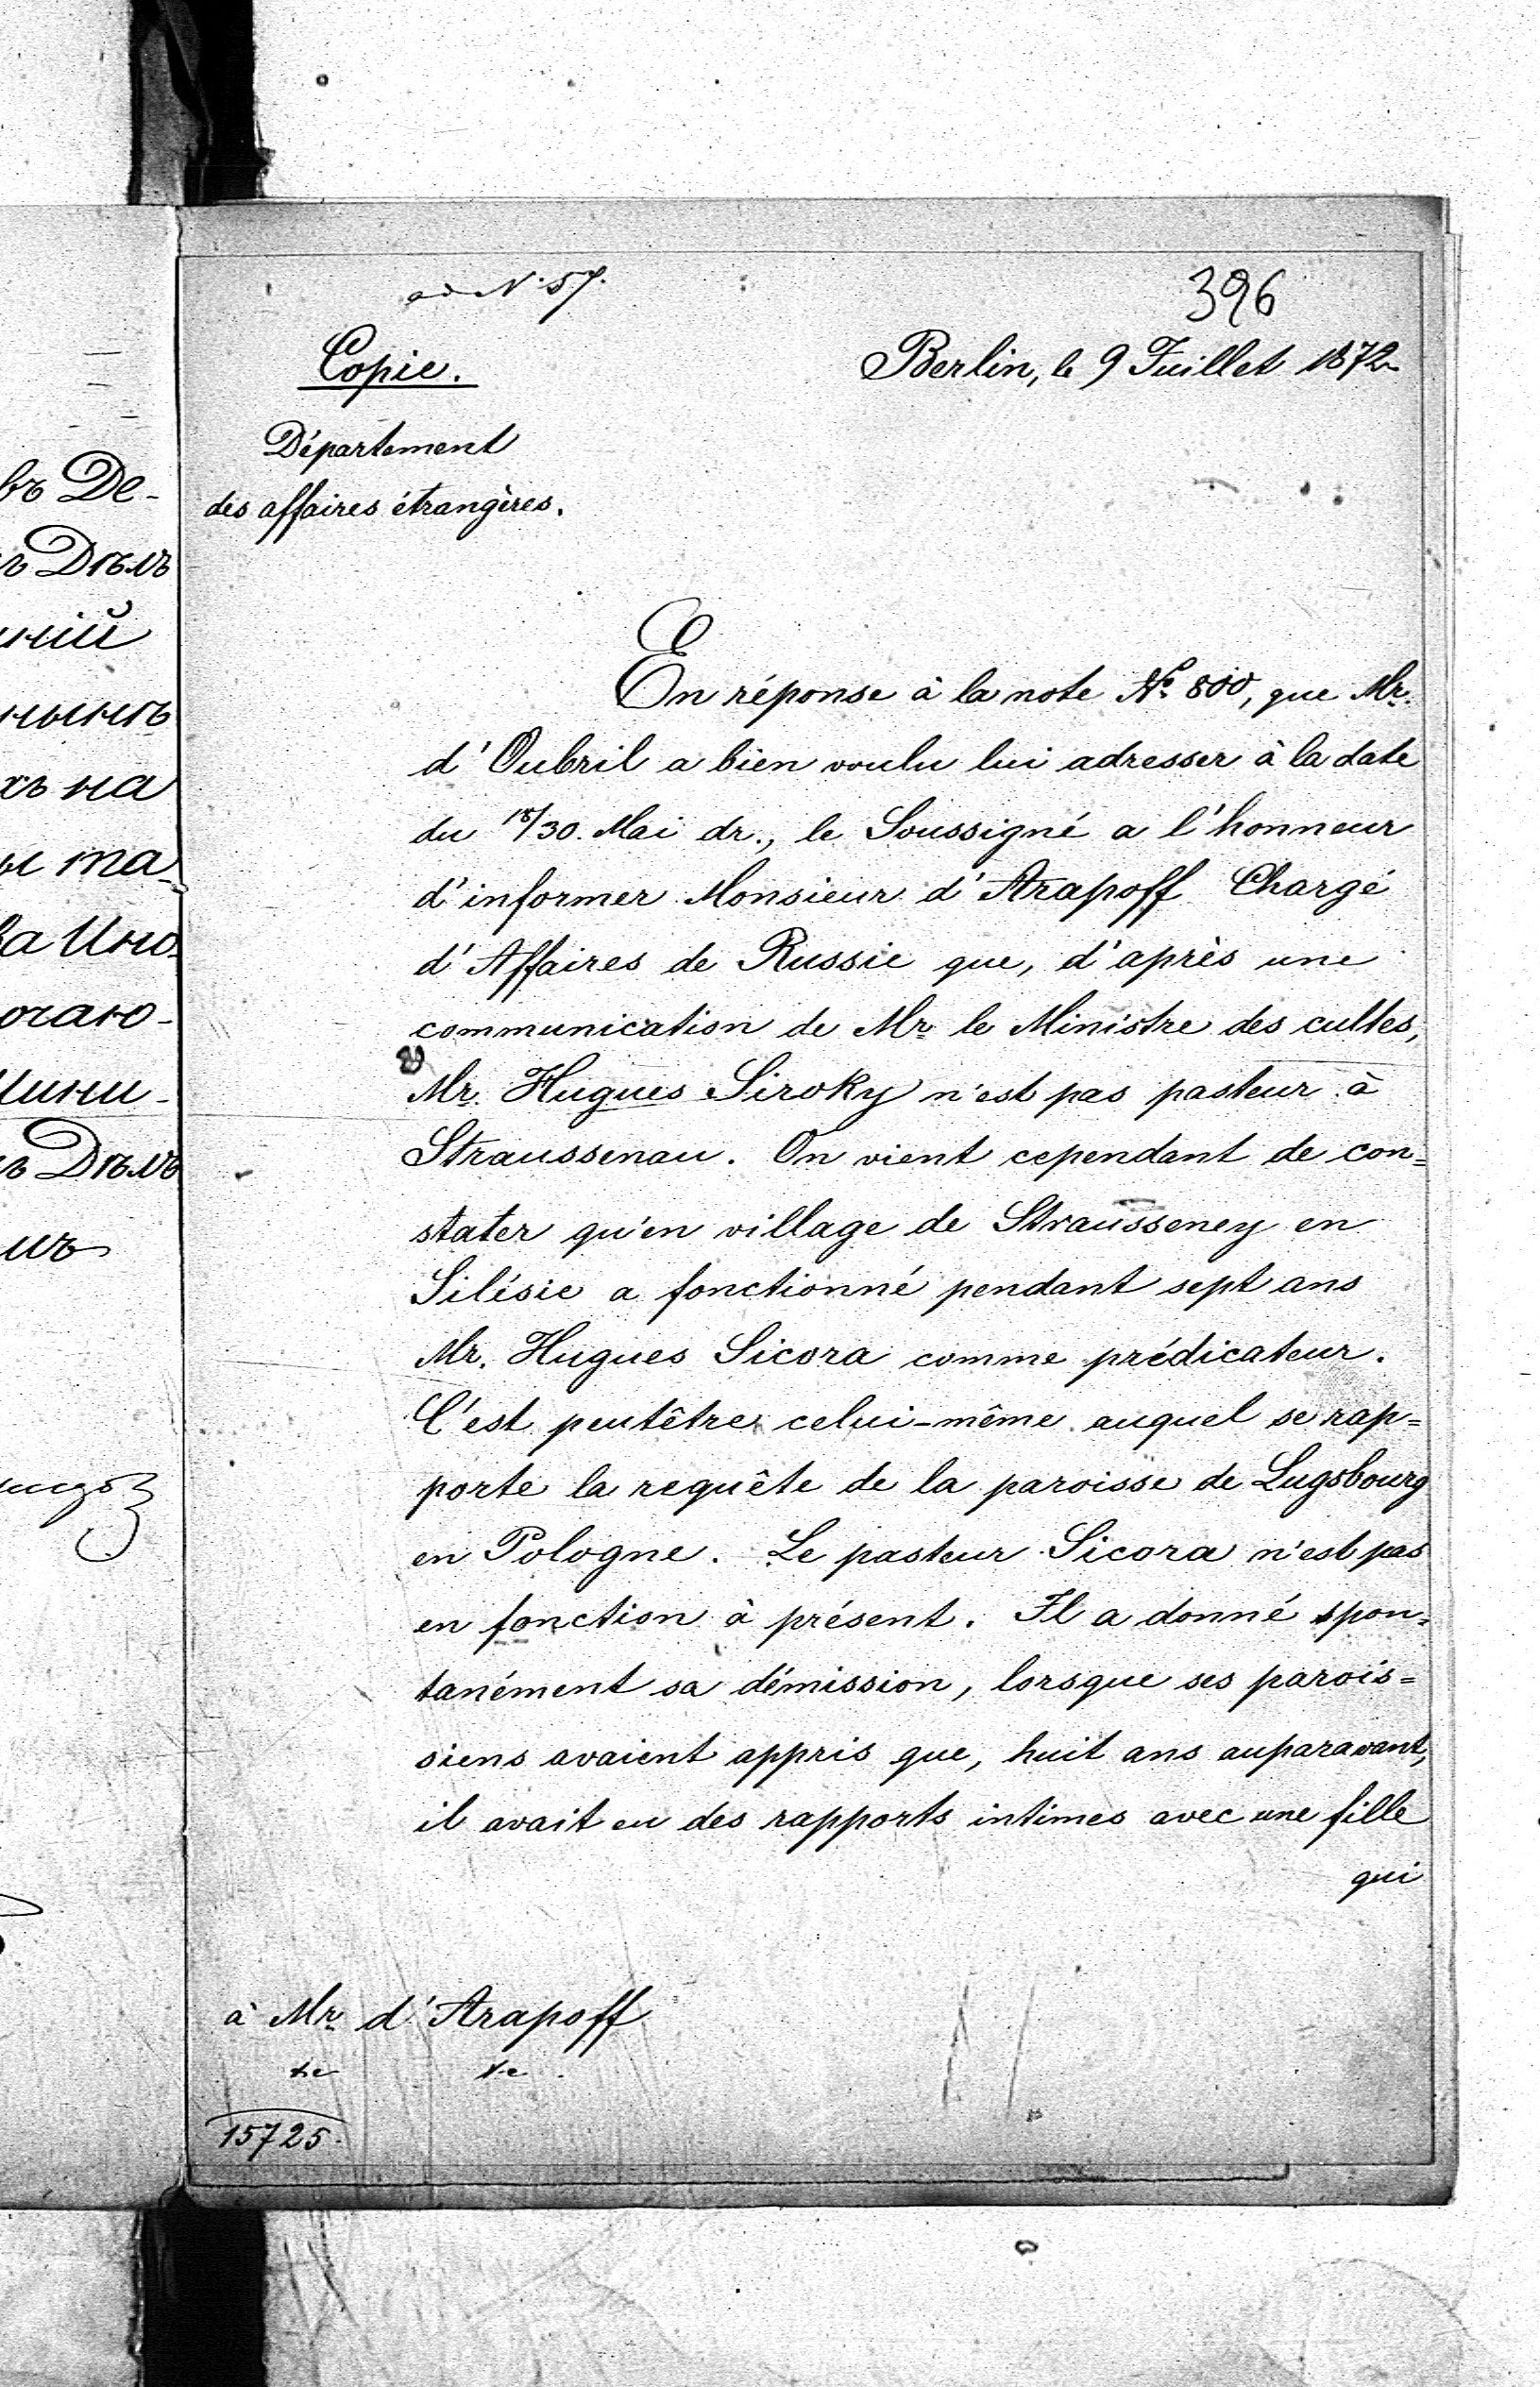 ad N. 57.
396
Copie.
Berlin, le 9 Juillet 1872
Département
des affaires étrangères.
En réponse à la note No. 800, que Mr.
d'Oubril a bien voulu lui adresser à la date
du 18/30. Mai dr., le Soussigné a l'honneur
d'informer Monsieur d'Arapoff Chargé
d'Affaires de Russie que, d'après une
communication de Mr. le Ministre des cultes,
Mr. Hugues Siroky n'est pas pasteur à
Straussenau. On vient cependant de con=
stater qu'en village de Strausseney en
Silésie a fonctionné pendant sept ans
Mr. Hugues Sicora comme prédicateur.
C'est peutêtre celui-même auquel se rap=
porte la requête de la paroisse de Lugsbourg
en Pologne. Le pasteur Sicora n'est pas
en fonction à présent. Il a donné spon=
tanément sa démission, lorsque ses parois=
siens avaient appris que, huit ans auparavant,
il avait eu des rapports intimes avec une fille
qui
à Mr. d'Arapoff
15725.
въ Де-
Дѣлъ
ній
нынѣ
хъ на
та-
Ино-
Дѣлъ